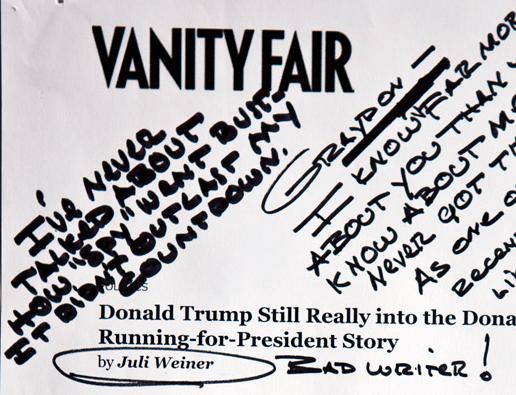 VANITY FAIR
I'VE NEVER
TALKED ABOUT
HOW "SPY" WENT BUST-
IT DIDN'T OUTLAST MY
COUNTDOWN.
GRAYDON —
I KNOW FAR MOR
ABOUT YOU THAN
KNOW ABOUT M
NEVER GOT TH
AS ONE O
RECEN
LI
Donald Trump Still Really into the Dona
Running-for-President Story
by Juli Weiner BAD WRITER!